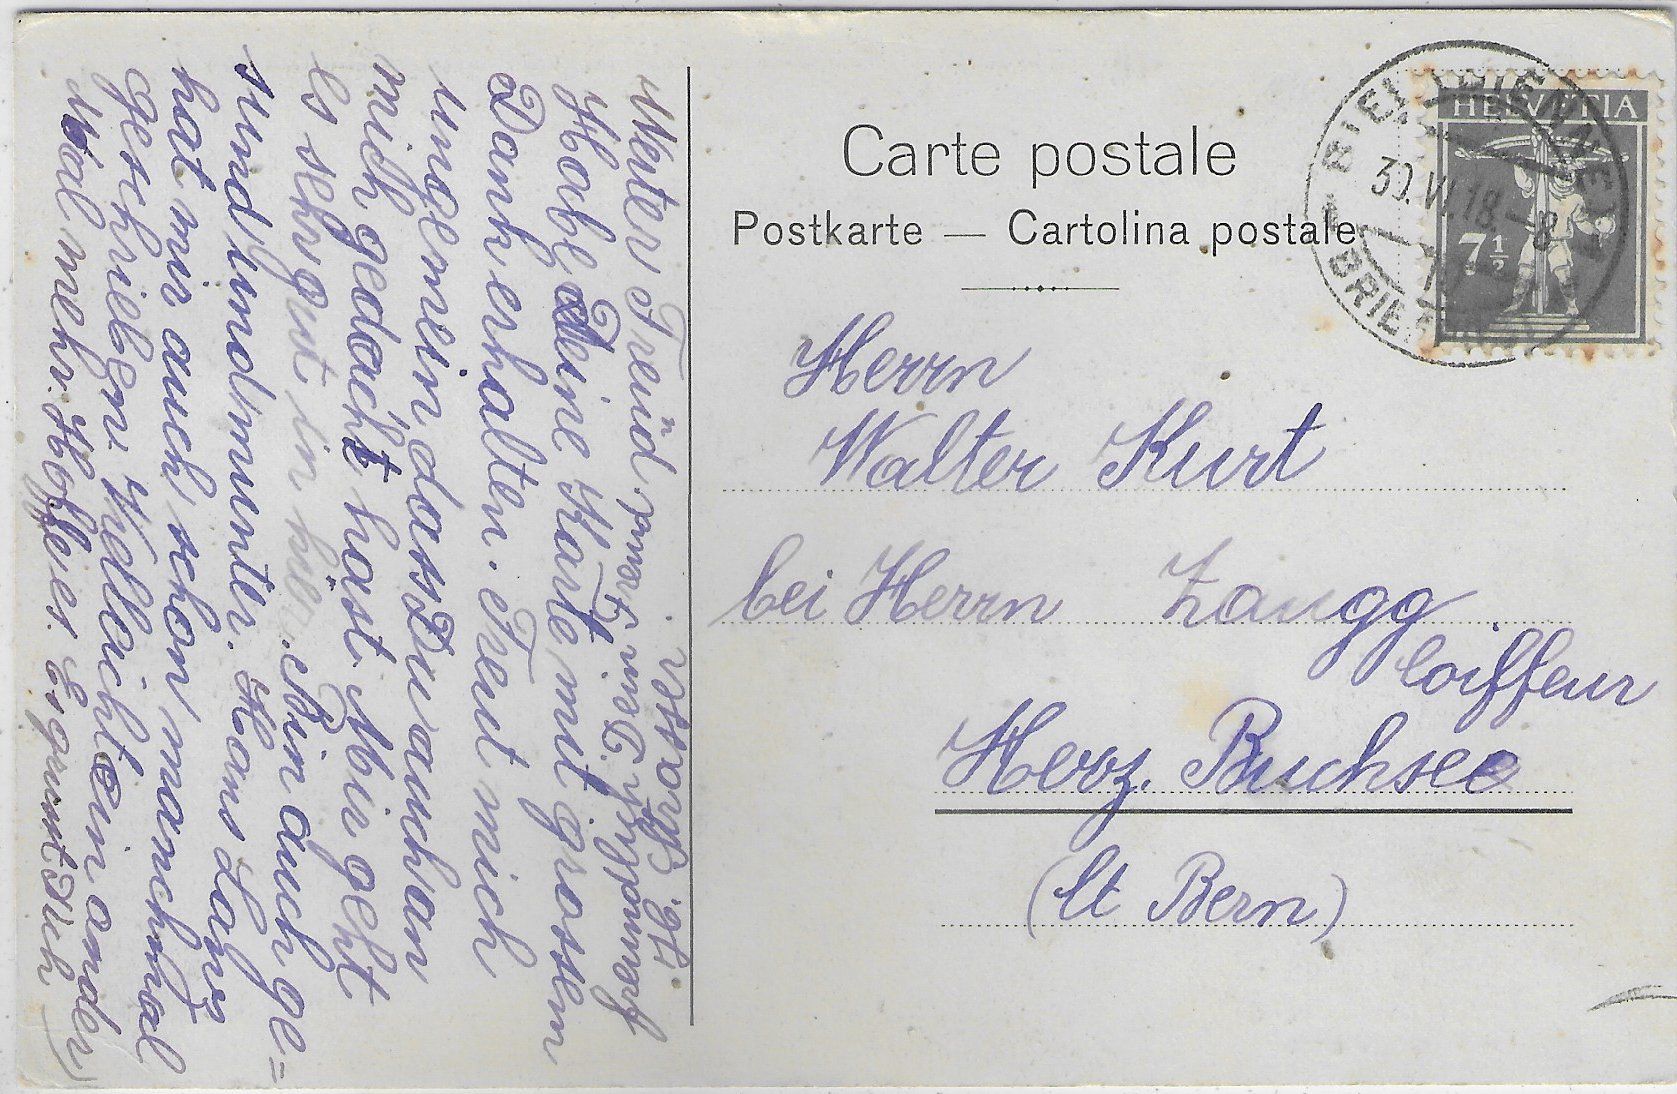 Carte postale
Postkarte — Cartolina postale
HELVETIA
7½
BIEL-BIENNE
30.VI.18.-8
Herrn
Walter Kurt
bei Herrn Zaugg
Coiffeur
Herz. Buchsee
(Ct Bern)
Werter Freund
Habe Deine Karte mit grossem
Dank erhalten. Freut mich
ungemein, dass Du auch an
mich gedacht hast. Mir geht
es sehr gut in hier. Bin auch ge=
sund und munter. Hans Lanz
hat mir auch schon manchmal
geschrieben. Vielleicht ein ander
Mal mehr. Hoffe es. Es grüsst Dich
freundlich Dein Freund